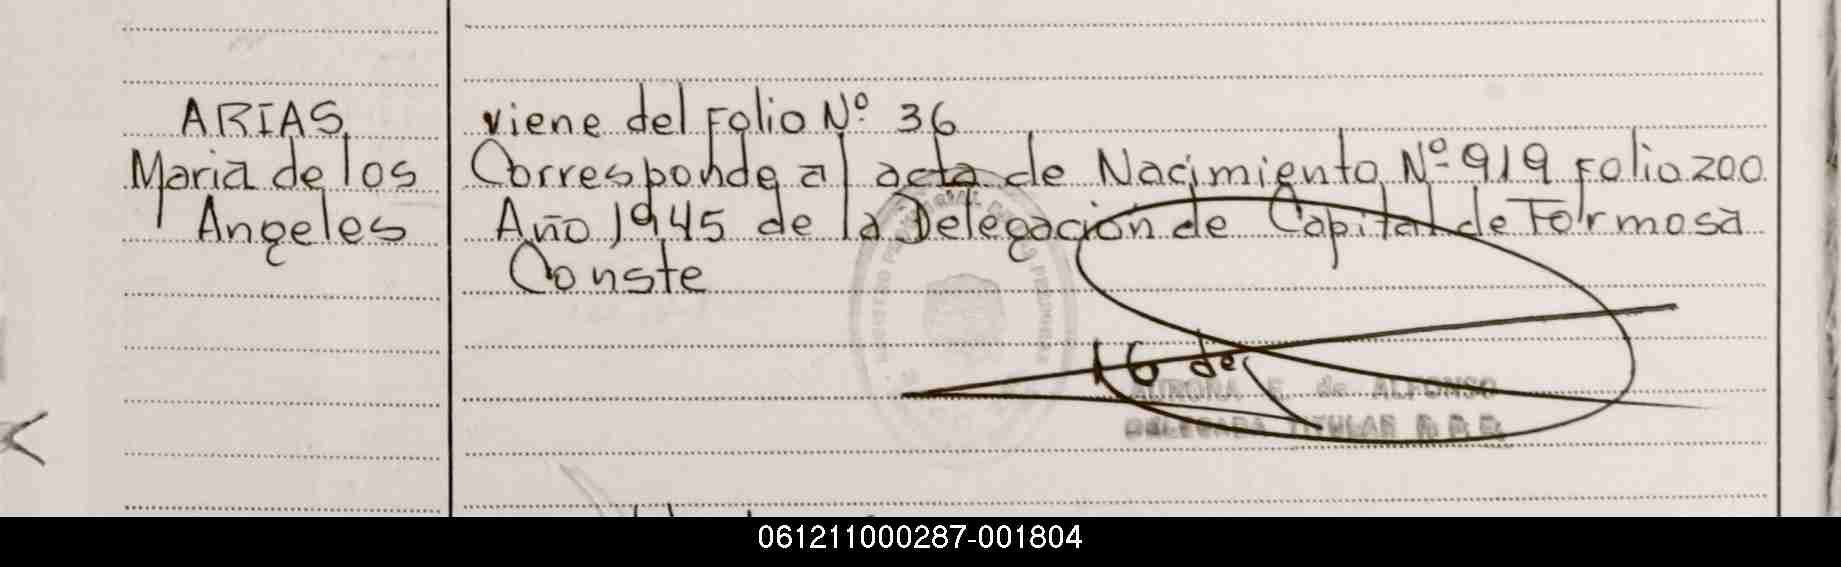 ARIAS,
Maria de los
Angeles
viene del Folio Nº 36
Corresponde al acta de Nacimiento Nº 919 Folio 200
Año 1945 de la Delegación de Capital de Formosa
Conste
AURORA E. de ALFONSO
DELEGADA TITULAR
061211000287-001804